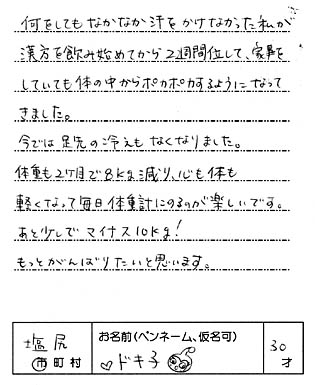 何をしてもなかなか汗をかけなかった私が
漢方を飲み始めてから2週間位して、家事を
していても体の中からポカポカするようになって
きました。
今では足先の冷えもなくなりました。
体重も2ヶ月で8kg減り、心も体も
軽くなって毎日体重計にのるのが楽しいです。
あと少しでマイナス10kg!
もっとがんばりたいと思います。
塩尻
市町村
お名前(ペンネーム、仮名可)
♡ドキ子
30
才